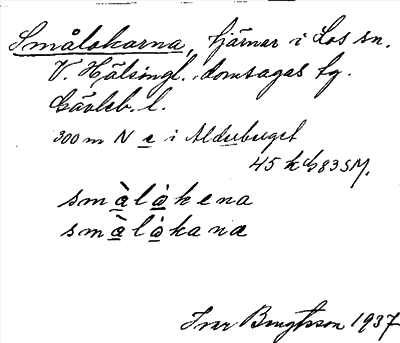 Smålokarna, tjärnar i Los sn.
V. Hälsingl. domsagas tg.
Gävleb. l.
300 m N e i Aldubuget
45 h 83 SM.
smàlòkena
smàlòkana
Ivar Bengtsson 1937